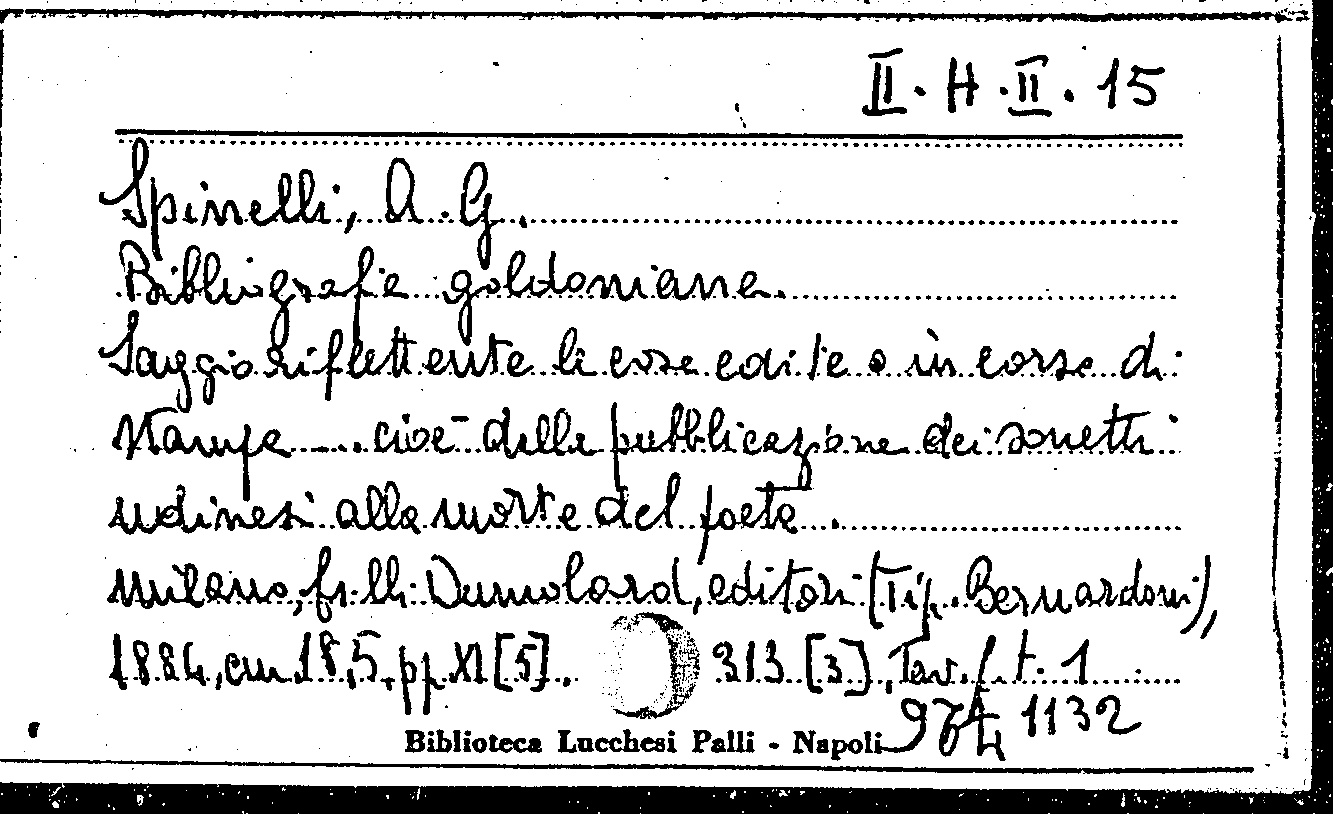 II. H. II. 15
Spinelli, A. G.
Bibliografia goldoniana.
Saggio riflettente le cose edite o in corso di
stampa .... cioè della pubblicazione dei sonetti
udinesi alla morte del poeta.
Milano, fr.lli Dumolard, editori (Tip. Bernardoni),
1884, cm. 18,5, pp. XI [5]. 313 [3], Tav. f. t. 1
Biblioteca Lucchesi Palli - Napoli 1132